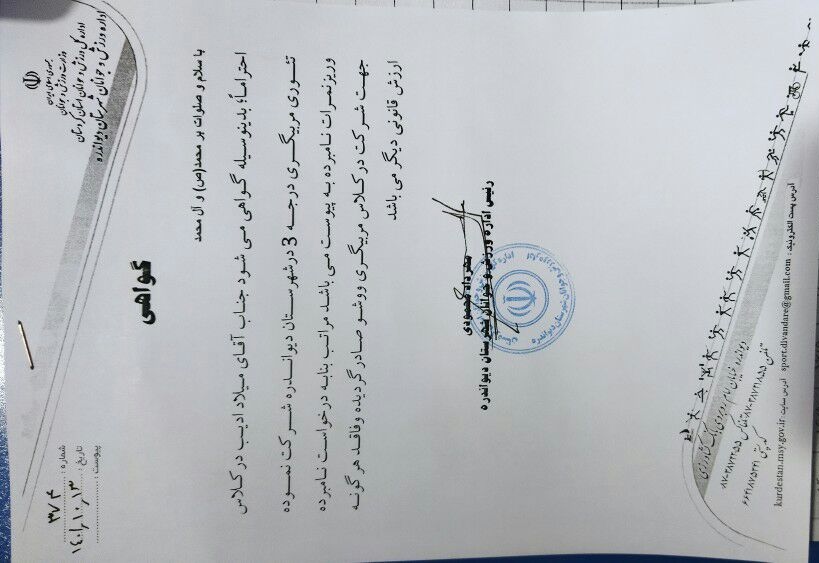 جمهوری اسلامی ایران
وزارت ورزش و جوانان
اداره کل ورزش و جوانان استان کردستان
اداره ورزش و جوانان شهرستان دیواندره
شماره :
۳۱/۴
تاریخ :
۱۴۰۱,۱۰,۱۳
پیوست :
گواهی
با سلام و صلوات بر محمد(ص) و آل محمد
احتراماً؛ بدینوسیله گواهی می شود جناب آقای میلاد ادیب در کلاس
تئوری مربیگری درجه 3 در شهرستان دیواندره شرکت نموده
وریزنمرات نامبرده به پیوست می باشد مراتب بنابه درخواست نامبرده
جهت شرکت در کلاس مربیگری ووشو صادر گردیده وفاقد هرگونه
ارزش قانونی دیگر می باشد
مهرداد محمودی
رئیس اداره ورزش و جوانان شهرستان دیواندره
کد پستی ۶۶۴۱۸۷۵۲۴۱
آدرس پست الکترونیک : sport.divandare@gmail.com آدرس سایت : kurdestan.msy.gov.ir